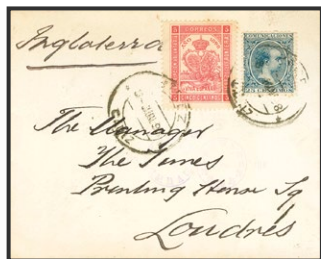 Inglaterra
CORREOS
COMUNICACIONES
The Manager
The Times
Printing House Sq
Londres